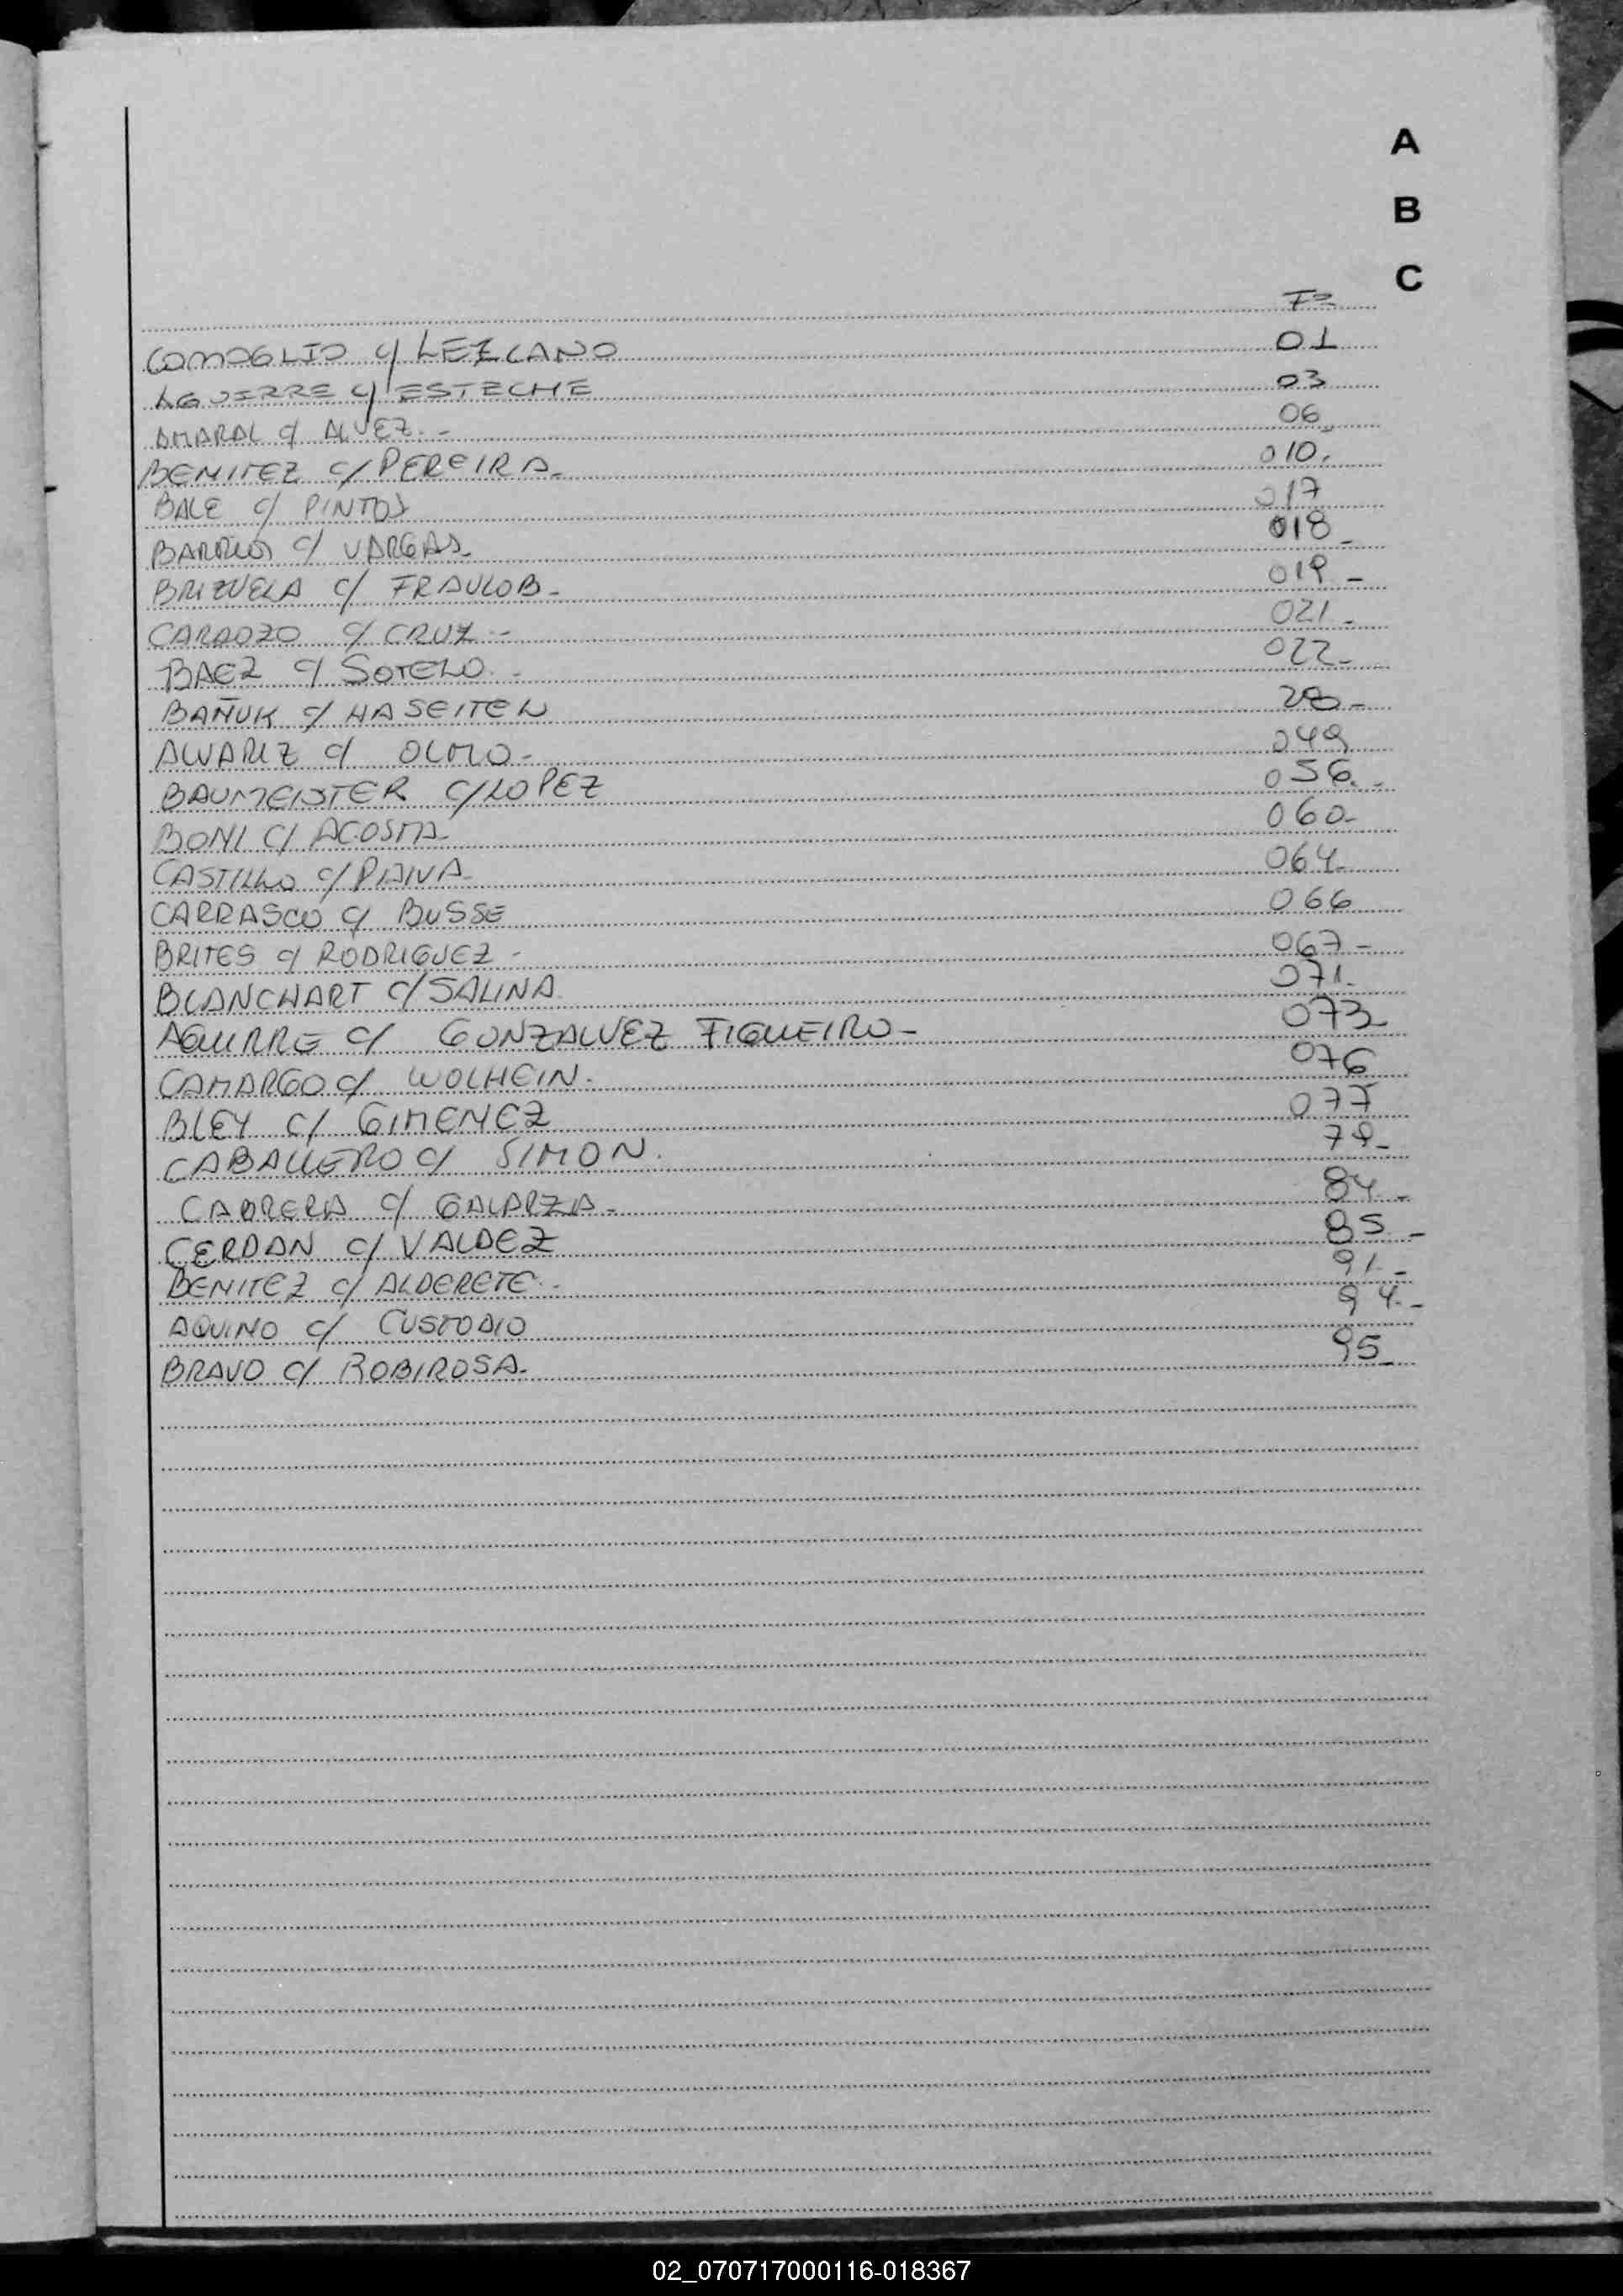 A
B
C
Fº
COMOGLIO c/ LEZCANO 01
AGUIRRE c/ ESTECHE 03
AMARAL c/ ALVEZ.- 06_
BENITEZ c/ PEREIRA_ 010.
BALE c/ PINTOS 017
BARRIOS c/ VARGAS_ 018_
BRIZUELA c/ FRAULOB_ 019_
CARDOZO c/ CRUZ.- 021_
BAEZ c/ SOTELO.- 022_
BAÑUK c/ HASEITEN 28_
ALVAREZ c/ OLMO_ 049
BAUMEISTER c/ LOPEZ 056.-
BONI c/ ACOSTA_ 060-
CASTILLO c/ PAIVA_ 064_
CARRASCO c/ BUSSE 066
BRITES c/ RODRIGUEZ - 067-
BLANCHART c/ SALINA 071_
AGUIRRE c/ GONZALVEZ FIGUEIRO_ 073_
CAMARGO c/ WOLHEIN. 076
BLEY c/ GIMENEZ 077
CABALLERO c/ SIMON. 79_
CABRERA c/ GALARZA_ 84_
CERDAN c/ VALDEZ 85_
BENITEZ c/ ALDERETE.- 91_
AQUINO c/ CUSTODIO 94.-
BRAVO c/ ROBIROSA_ 95_
02_070717000116-018367